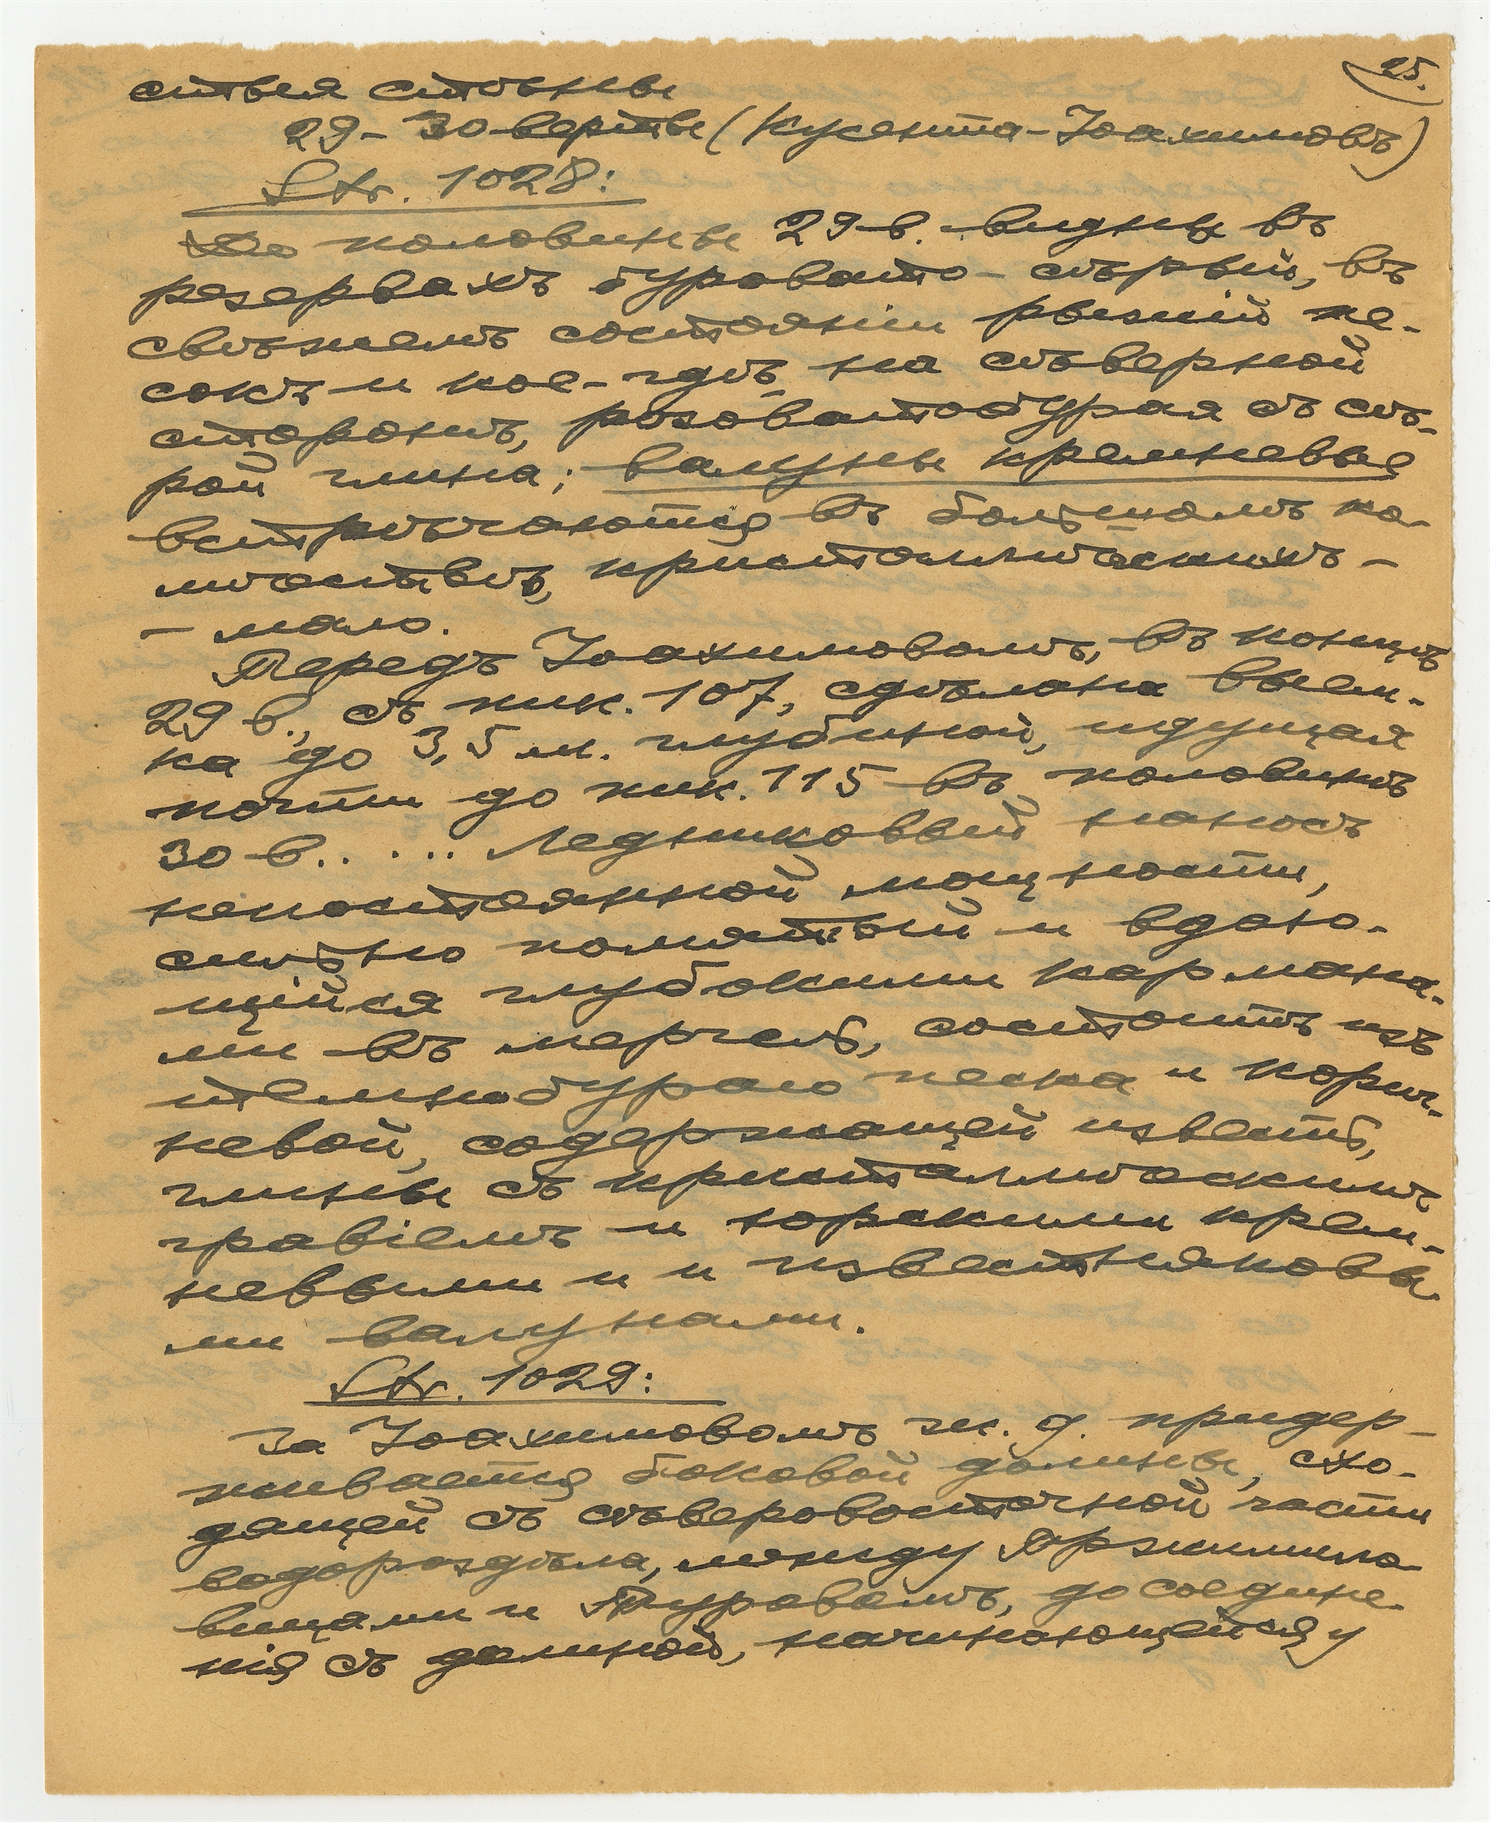 25.
стыя стѣны
29-30 версты (Кусента-Іоахимовъ)
Str. 1028:
До половины 29 в. видны въ
резервахъ буровато-сѣрый, въ
свѣжемъ состояніи рыжій пе-
сокъ и кое-гдѣ, на сѣверной
сторонѣ, розоватобурая съ сѣ-
рой глина; валуны кремневые
встрѣчаются въ большомъ ко-
личествѣ, кристаллическихъ -
- мало.
Передъ Іоахимовомъ, въ концѣ
29 в., съ пик. 107, сдѣлана выем-
ка до 3,5 м. глубиной, идущая
почти до пик. 115 въ половинѣ
30 в. .... Ледниковый наносъ
непостоянной мощности,
сильно помятый и вдаю-
щійся глубокими кармана-
ми въ мергель, состоитъ изъ
темнобураго песка и корич-
невой, содержащей известь,
глины съ кристаллическимъ
гравіемъ и юрскими крем-
невыми и и известняковы
ми валунами.
Str. 1029:
За Іоахимовомъ ж. д. придер-
живается боковой долины, схо-
дящей съ сѣверовосточной части
водораздѣла, между
вицами и Туровомъ, до соедине-
нія съ долиной, начинающейся у